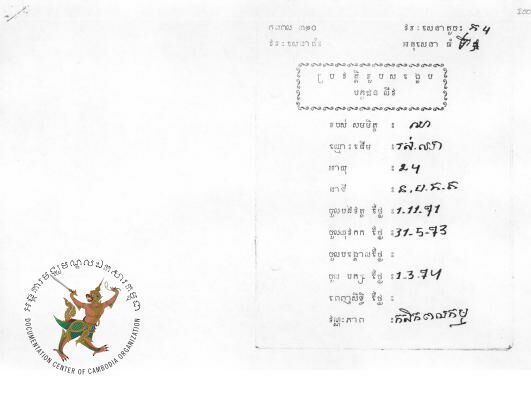 កពល ៣១០
ទីនៈសេនាតូចៈ ភ ៤
អនុសេនា ធំ
ប្រវត្តិរូបសង្ខេប
បក្ខជន យីវ
របស់ សមមិត្ត ៖ ណា
ឈ្មោះដើម ៖
អាយុ ៖ 24
នាទី ៖
ចូលបដិវត្ត ថ្ងៃ ៖ 1.11.71
ចូលយុវកក ថ្ងៃ ៖ 31-5-73
ចូលបង្គោលថ្ងៃ ៖
ចូល បក្ស ថ្ងៃ ៖ 1.3.74
ពេញសិទ្ធិ ថ្ងៃ ៖
វណ្ណៈភាព ៖ កសិកពលកម្ម
អង្គការមជ្ឈមណ្ឌលឯកសារកម្ពុជា
DOCUMENTATION CENTER OF CAMBODIA ORGANIZATION